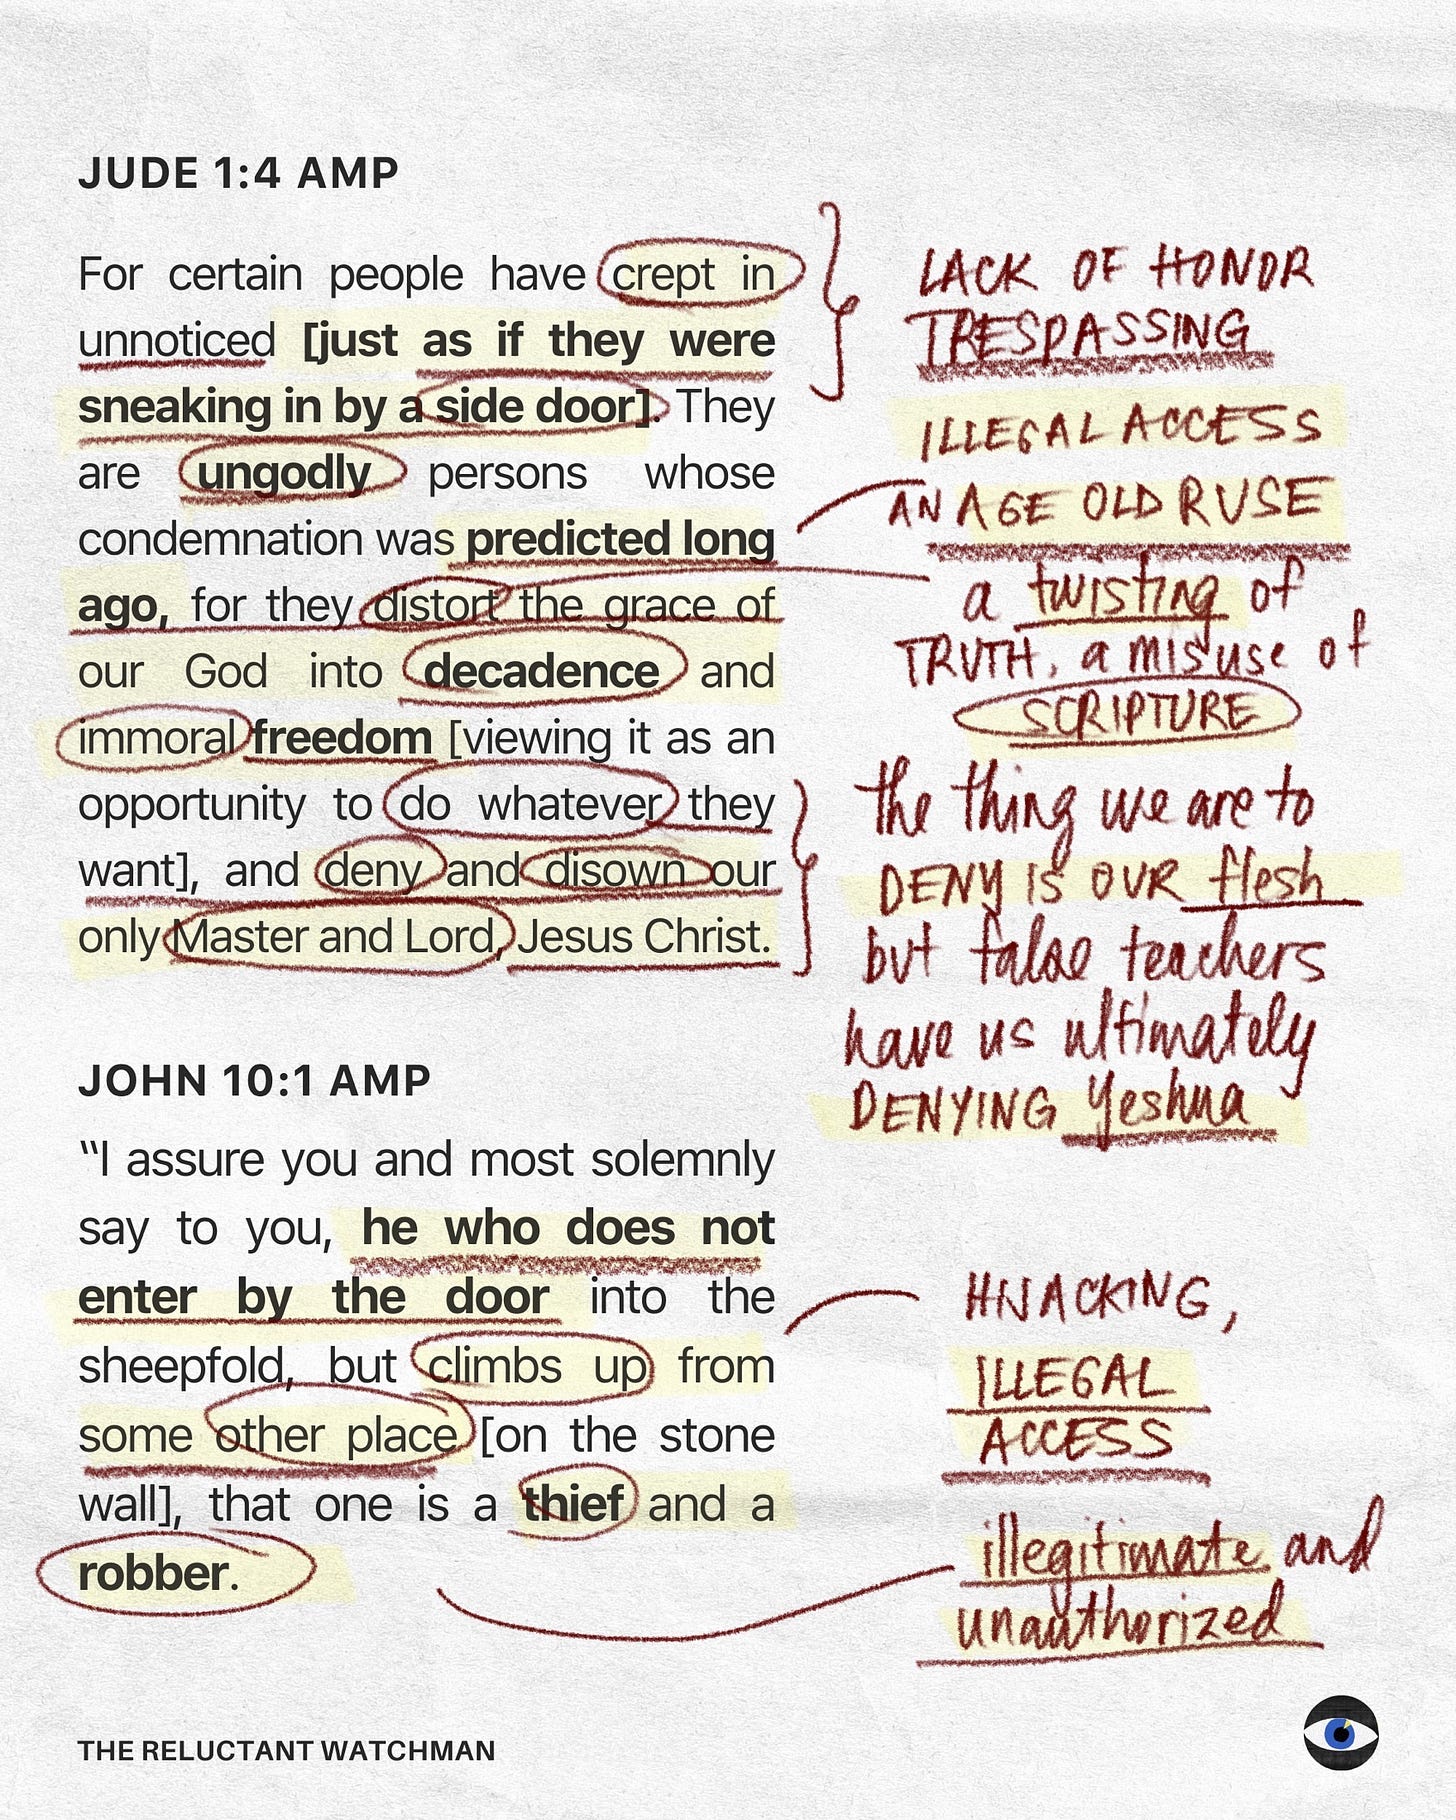 JUDE 1:4 AMP
For certain people have crept in
unnoticed [just as if they were
sneaking in by a side door]. They
are ungodly persons whose
condemnation was predicted long
ago, for they distort the grace of
our God into decadence and
immoral freedom [viewing it as an
opportunity to do whatever they
want], and deny and disown our
only Master and Lord, Jesus Christ.
LACK OF HONOR
TRESPASSING
ILLEGAL ACCESS
AN AGE OLD RUSE
a twisting of
TRUTH, a misuse of
SCRIPTURE
the thing we are to
DENY IS OUR flesh
but false teachers
have us ultimately
DENYING Yeshua
JOHN 10:1 AMP
“I assure you and most solemnly
say to you, he who does not
enter by the door into the
sheepfold, but climbs up from
some other place [on the stone
wall], that one is a thief and a
robber.
HIJACKING,
ILLEGAL
ACCESS
illegitimate and
unauthorized
THE RELUCTANT WATCHMAN